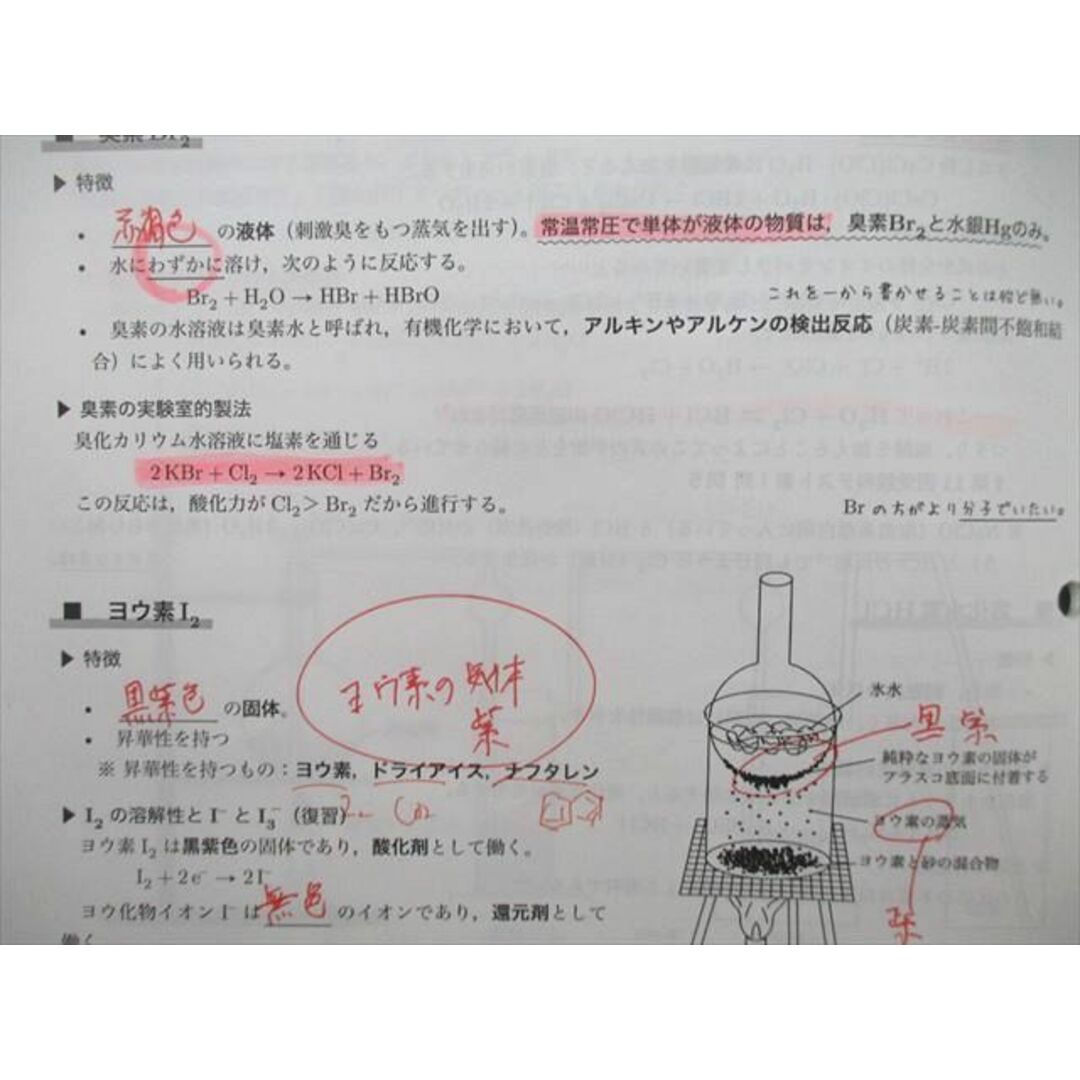 ■ 臭素 Br₂
▶ 特徴
・ 赤褐色 の液体（刺激臭をもつ蒸気を出す）。常温常圧で単体が液体の物質は，臭素Br₂と水銀Hgのみ。
・ 水にわずかに溶け，次のように反応する。
Br₂ + H₂O → HBr + HBrO
これを一から書かせることは殆ど無い。
・ 臭素の水溶液は臭素水と呼ばれ，有機化学において，アルキンやアルケンの検出反応（炭素-炭素間不飽和結
合）によく用いられる。
▶ 臭素の実験室的製法
臭化カリウム水溶液に塩素を通じる
2KBr + Cl₂ → 2KCl + Br₂
この反応は，酸化力が Cl₂ > Br₂ だから進行する。
Br の方がより分子でいたい。
■ ヨウ素 I₂
▶ 特徴
・ 黒紫色 の固体。
・ 昇華性を持つ
※ 昇華性を持つもの：ヨウ素，ドライアイス，ナフタレン
ヨウ素の気体
紫
▶ I₂ の溶解性と I⁻ と I₃⁻（復習）
ヨウ素 I₂ は黒紫色の固体であり，酸化剤として働く。
I₂ + 2e⁻ → 2I⁻
ヨウ化物イオン I⁻ は 無色 のイオンであり，還元剤として
働く
氷水
黒紫
純粋なヨウ素の固体が
フラスコ底面に付着する
ヨウ素の蒸気
ヨウ素と砂の混合物
紫